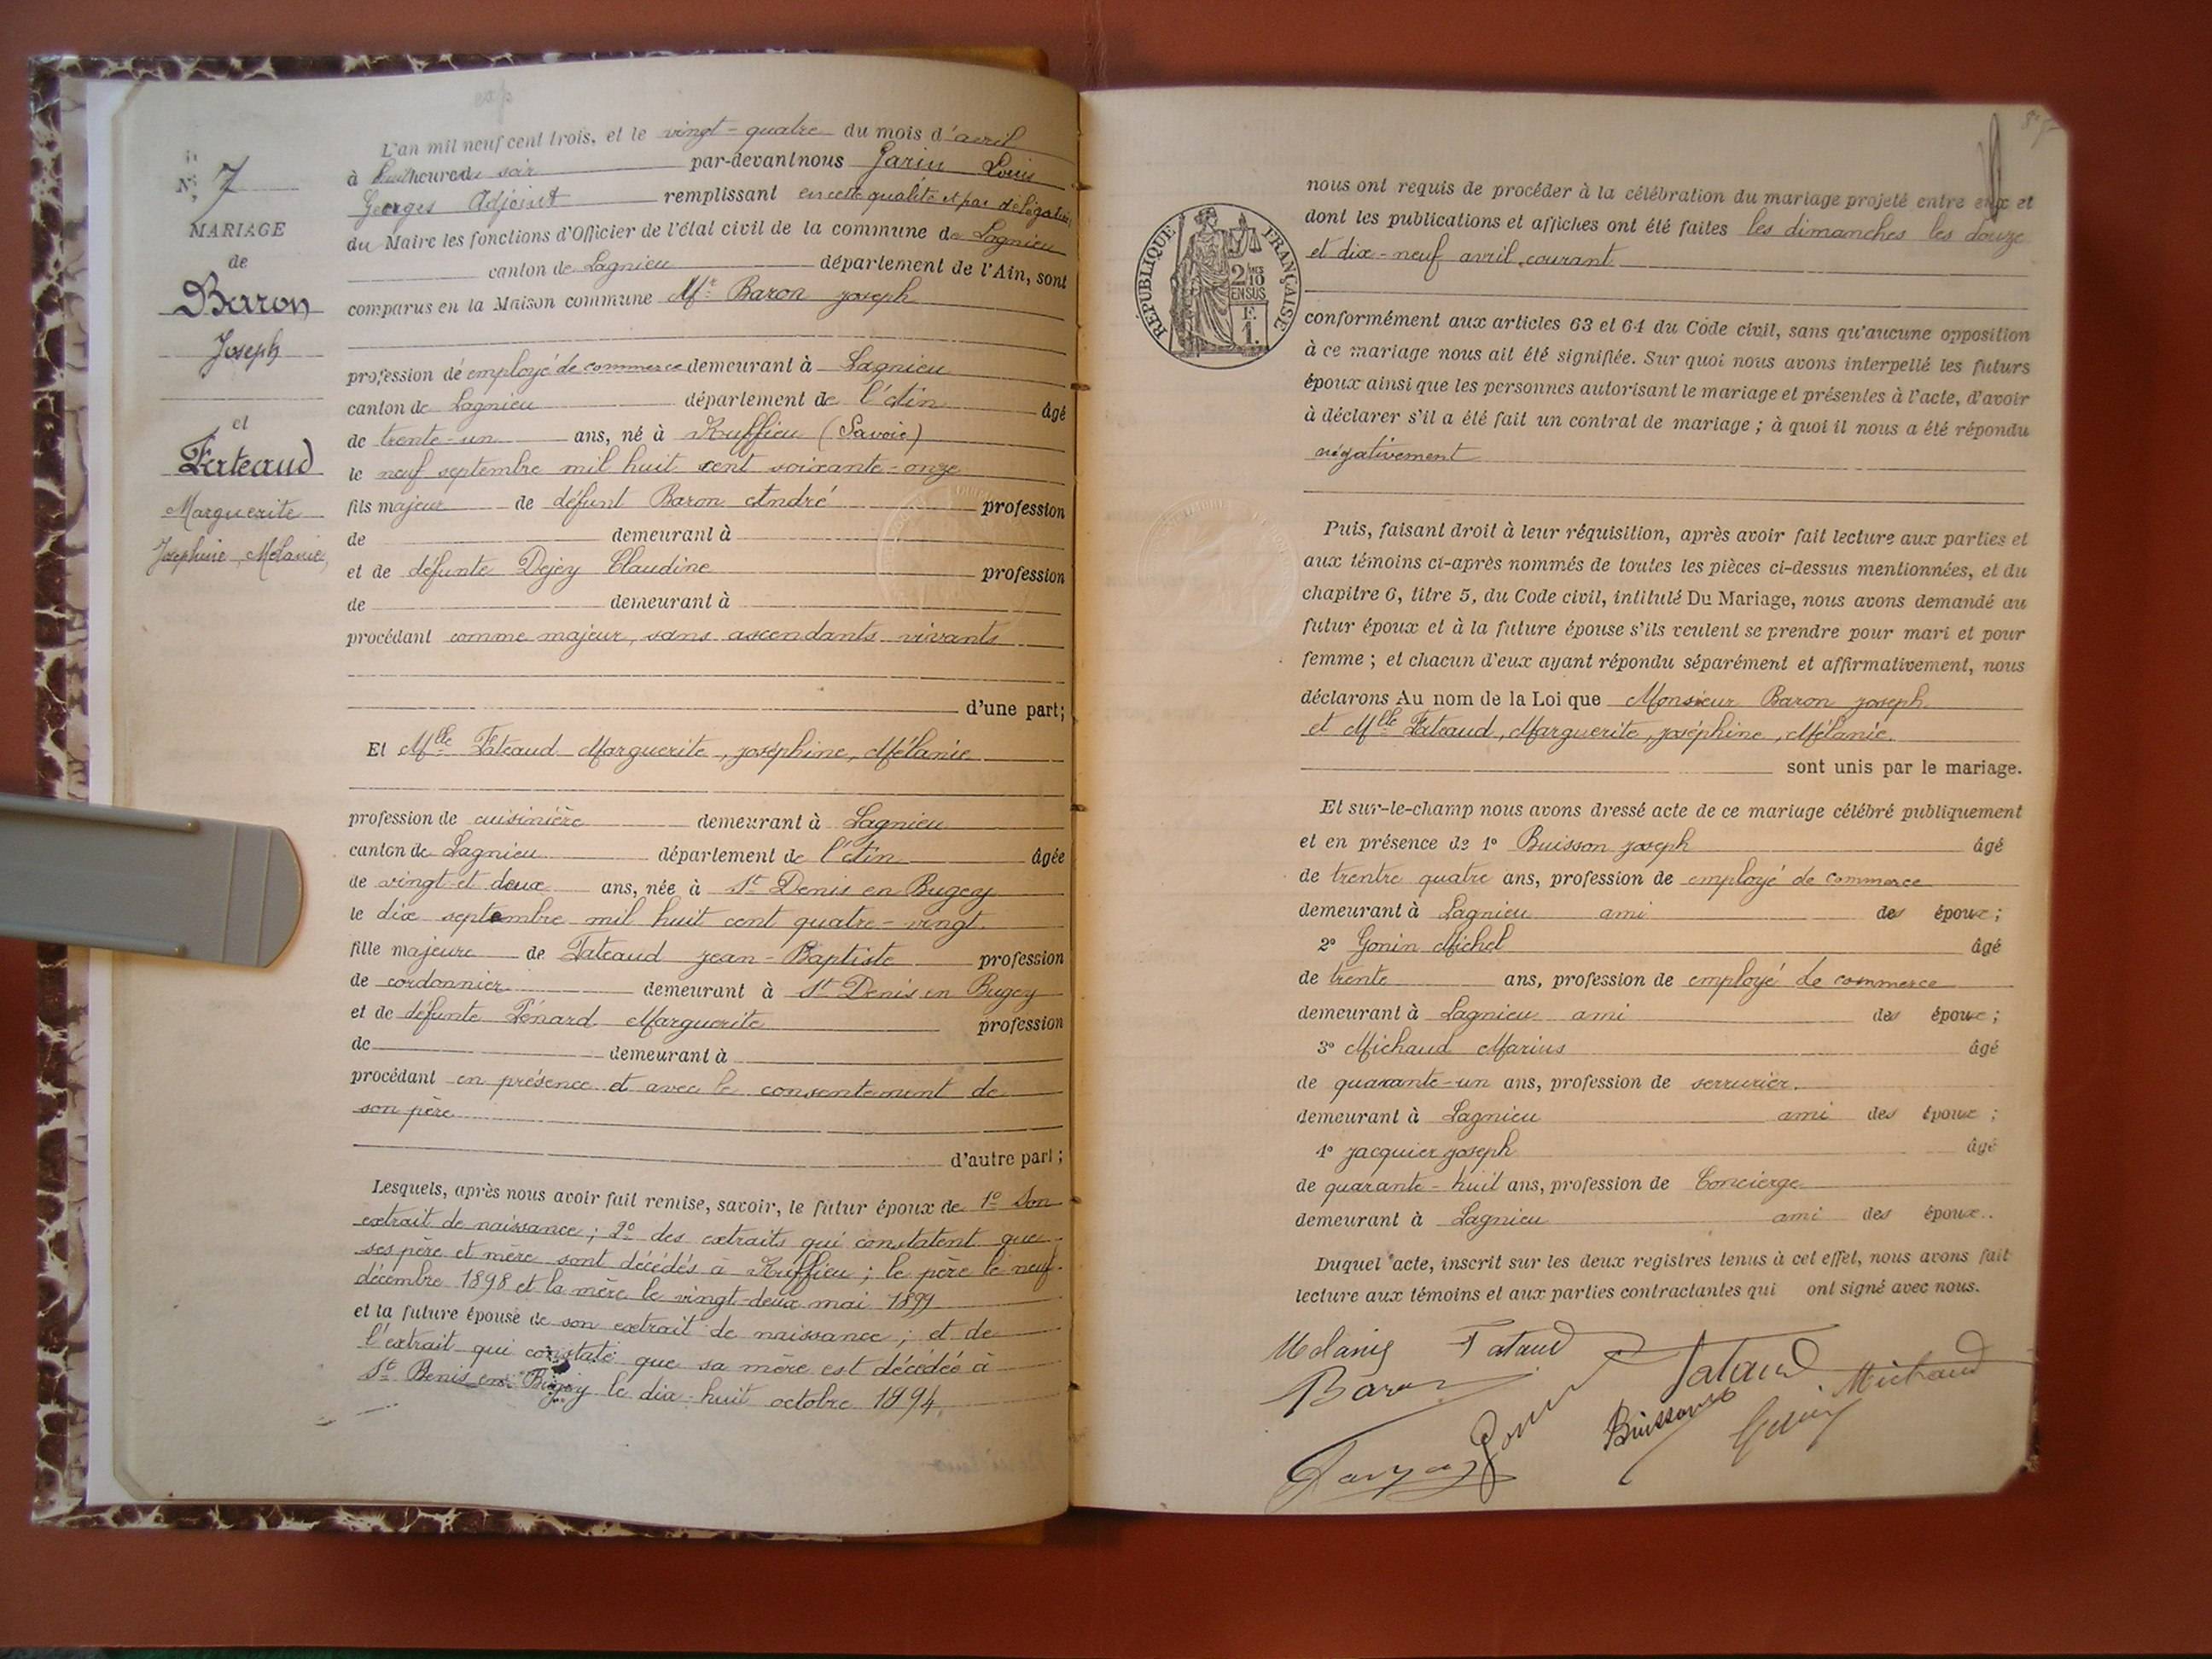 N° 7
MARIAGE
de
Baron
Joseph
et
Fateaud
Marguerite
Joséphine, Mélanie
L'an mil neuf cent trois, et le vingt-quatre du mois d'avril
à huit heures du soir par-devant nous Garin Louis
Georges Adjoint remplissant en cette qualité et par délégation
du Maire les fonctions d'Officier de l'état civil de la commune de Lagnieu
canton de Lagnieu département de l'Ain, sont
comparus en la Maison commune Mr Baron Joseph
profession de employé de commerce demeurant à Lagnieu
canton de Lagnieu département de l'Ain âgé
de trente-un ans, né à Ruffieu (Savoie)
le neuf septembre mil huit cent soixante-onze
fils majeur de défunt Baron André profession
de demeurant à
et de défunte Dejey Claudine profession
de demeurant à
procédant comme majeur, sans ascendants vivants
d'une part;
Et Mlle Fateaud Marguerite, Joséphine, Mélanie
profession de cuisinière demeurant à Lagnieu
canton de Lagnieu département de l'Ain âgée
de vingt et deux ans, née à St Denis en Bugey
le dix septembre mil huit cent quatre-vingt
fille majeure de Fateaud Jean-Baptiste profession
de cordonnier demeurant à St Denis en Bugey
et de défunte Pénard Marguerite profession
de demeurant à
procédant en présence et avec le consentement de
son père
d'autre part;
Lesquels, après nous avoir fait remise, savoir, le futur époux de 1° Son
extrait de naissance; 2° des extraits qui constatent que
ses père et mère sont décédés à Ruffieu; le père le neuf
décembre 1898 et la mère le vingt-deux mai 1899
et la future épouse de son extrait de naissance; et de
l'extrait qui constate que sa mère est décédée à
St Denis en Bugey le dix-huit octobre 1894.
RÉPUBLIQUE FRANÇAISE
2/10
EN SUS
F.
1.
nous ont requis de procéder à la célébration du mariage projeté entre eux et
dont les publications et affiches ont été faites les dimanches les douze
et dix-neuf avril courant
conformément aux articles 63 et 64 du Code civil, sans qu'aucune opposition
à ce mariage nous ait été signifiée. Sur quoi nous avons interpellé les futurs
époux ainsi que les personnes autorisant le mariage et présentes à l'acte, d'avoir
à déclarer s'il a été fait un contrat de mariage; à quoi il nous a été répondu
négativement
Puis, faisant droit à leur réquisition, après avoir fait lecture aux parties et
aux témoins ci-après nommés de toutes les pièces ci-dessus mentionnées, et du
chapitre 6, titre 5, du Code civil, intitulé Du Mariage, nous avons demandé au
futur époux et à la future épouse s'ils veulent se prendre pour mari et pour
femme; et chacun d'eux ayant répondu séparément et affirmativement, nous
déclarons Au nom de la Loi que Monsieur Baron Joseph
et Mlle Fateaud, Marguerite, Joséphine, Mélanie.
sont unis par le mariage.
Et sur-le-champ nous avons dressé acte de ce mariage célébré publiquement
et en présence de 1° Buisson Joseph âgé
de trentre quatre ans, profession de employé de commerce
demeurant à Lagnieu ami des époux;
2° Gonin Michel âgé
de trente ans, profession de employé de commerce
demeurant à Lagnieu ami des époux;
3° Michaud Marius âgé
de quarante-un ans, profession de serrurier.
demeurant à Lagnieu ami des époux;
4° Jacquier Joseph âgé
de quarante-huit ans, profession de Concierge
demeurant à Lagnieu ami des époux.
Duquel acte, inscrit sur les deux registres tenus à cet effet, nous avons fait
lecture aux témoins et aux parties contractantes qui ont signé avec nous.
Melanie Fataud
Fataud
Baron
Michaud
Gonin
Buisson